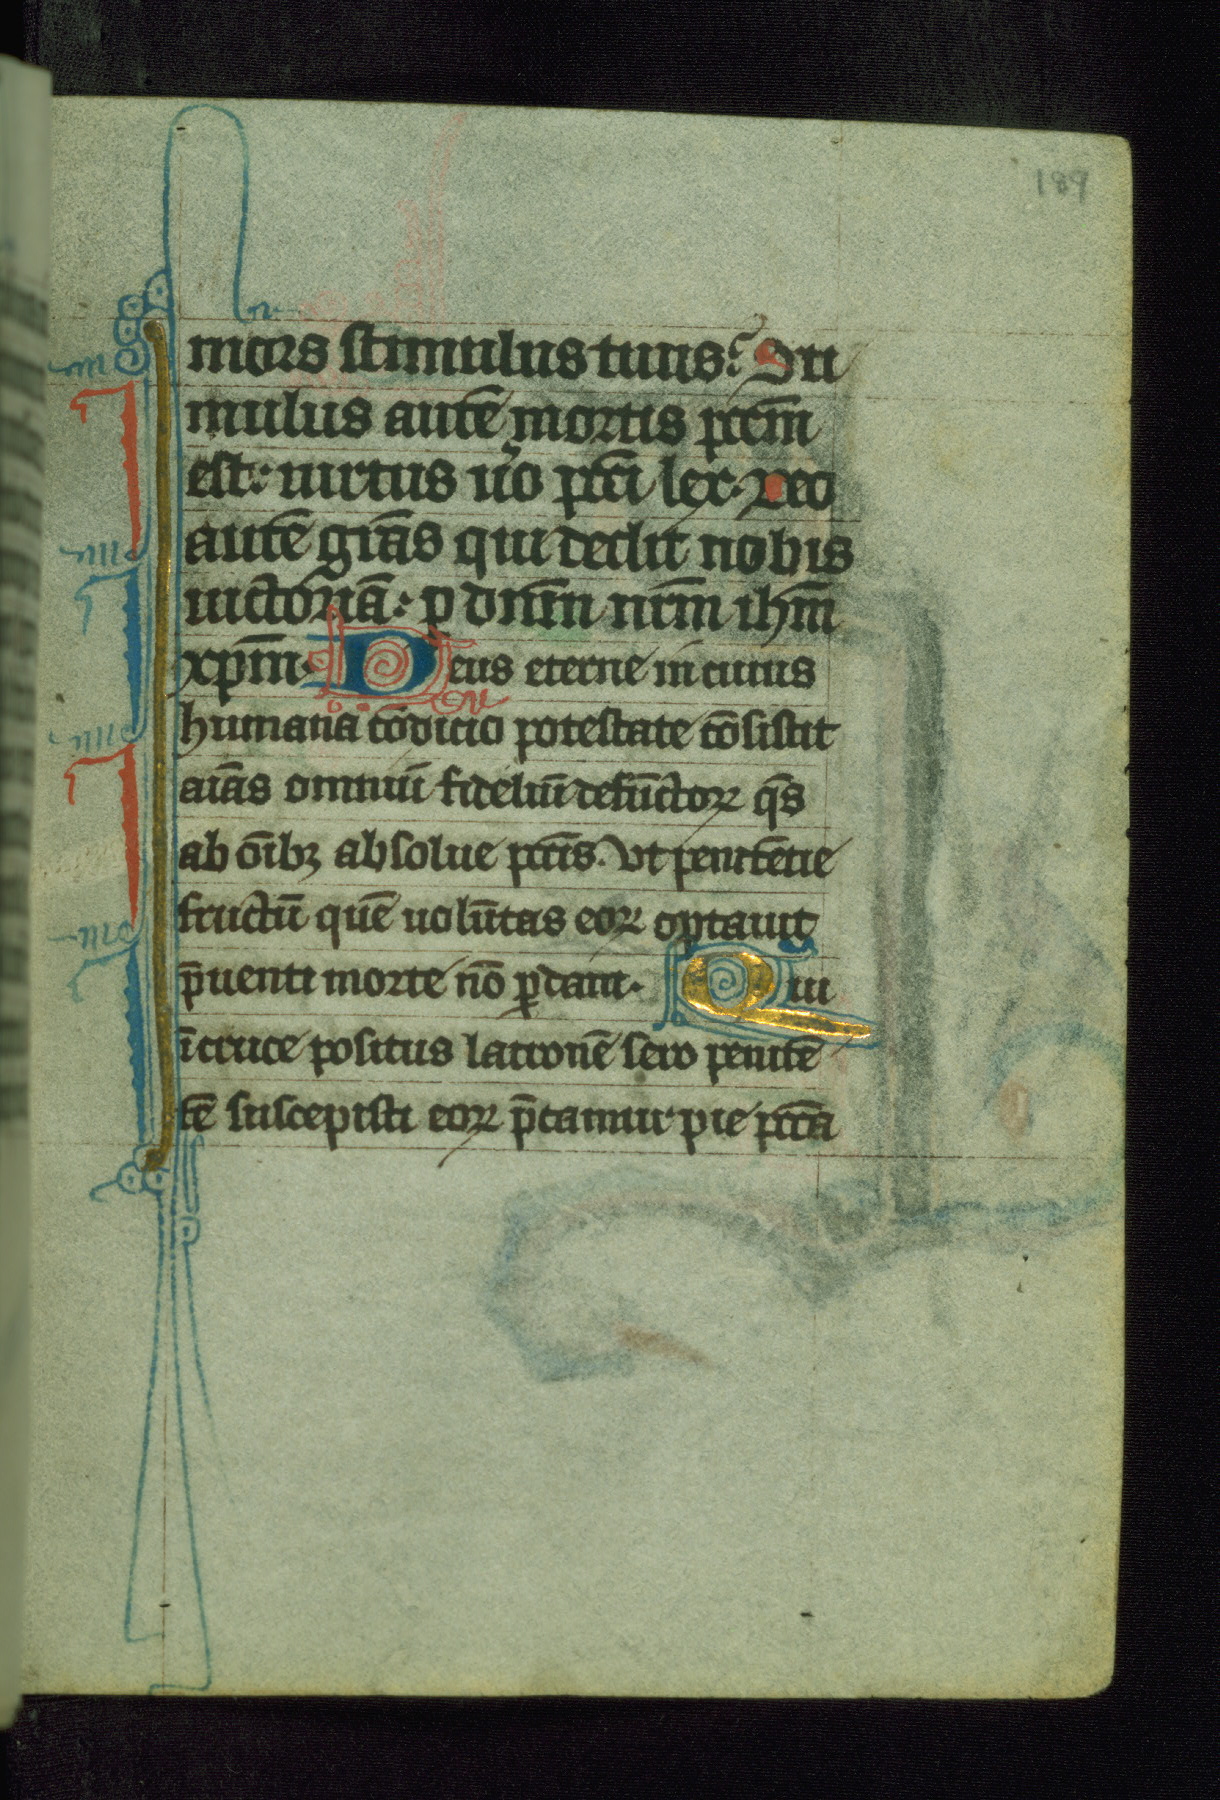 189
mors stimulus tuus? Sti
mulus autē mortis pctm̄
est: uirtus ūo pcti lex. Deo
autē grās qui dedit nobis
uictoriā: p dnm̄ nrm̄ ihm̄
xpm̄. Deus eterne in cuius
humana cōdicio potestate cōsistit
aīas omniū fideliū defūctoꝝ q̄s
ab oībꝫ absolue pctīs. Ut penitētie
fructū quē uolūtas eoꝝ optauit
p̄uenti morte nō ꝑdant. Qui
ī cruce positus latronē sero penitē
tē suscepisti eoꝝ p̄camur pie pctā